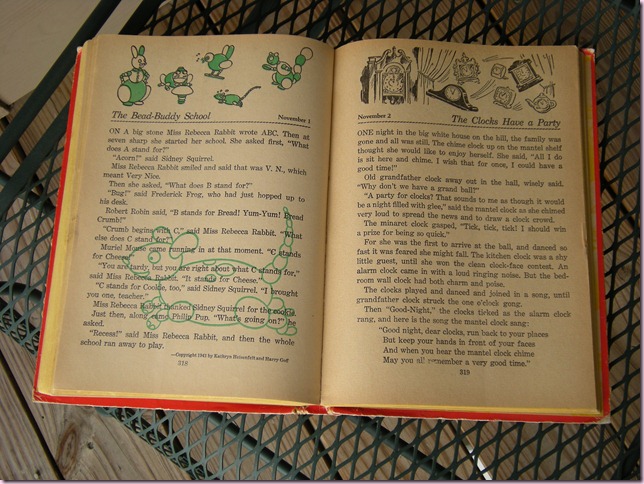 The Bead-Buddy School
November 1
ON A big stone Miss Rebecca Rabbit wrote ABC. Then at
seven sharp she started her school. She asked first, "What
does A stand for?"
"Acorn!" said Sidney Squirrel.
Miss Rebecca Rabbit smiled and said that was V. N., which
meant Very Nice.
Then she asked, "What does B stand for?"
"Bug!" said Frederick Frog, who had just hopped up to
his desk.
Robert Robin said, "B stands for Bread! Yum-Yum! Bread
Crumb!"
"Crumb begins with C," said Miss Rebecca Rabbit. "What
else does C stand for?"
Muriel Mouse came running in at that moment. "C stands
for Cheese!"
"You are tardy, but you are right about what C stands for,"
said Miss Rebecca Rabbit. "It stands for Cheese."
"C stands for Cookie, too," said Sidney Squirrel. "I brought
you one, teacher."
Miss Rebecca Rabbit thanked Sidney Squirrel for the cookie.
Just then, along came Philip Pup. "What's going on?" he
asked.
"Recess!" said Miss Rebecca Rabbit, and then the whole
school ran away to play.
—Copyright 1943 by Kathryn Heisenfelt and Harry Goff
318
November 2
The Clocks Have a Party
ONE night in the big white house on the hill, the family was
gone and all was still. The chime clock up on the mantel shelf
thought she would like to enjoy herself. She said, "All I do
is sit here and chime. I wish that for once, I could have a
good time!"
Old grandfather clock away out in the hall, wisely said.
"Why don't we have a grand ball!"
"A party for clocks? That sounds to me as though it would
be a night filled with glee," said the mantel clock as she chimed
very loud to spread the news and to draw a clock crowd.
The minaret clock gasped, "Tick, tick, tick! I should win
a prize for being so quick."
For she was the first to arrive at the ball, and danced so
fast it was feared she might fall. The kitchen clock was a shy
little guest, until she won the clean clock-face contest. An
alarm clock came in with a loud ringing noise. But the bed-
room wall clock had both charm and poise.
The clocks played and danced and joined in a song, until
grandfather clock struck the one o'clock gong.
Then "Good-Night," the clocks ticked as the alarm clock
rang, and here is the song the mantel clock sang:
"Good night, dear clocks, run back to your places
But keep your hands in front of your faces
And when you hear the mantel clock chime
May you all remember a very good time."
319